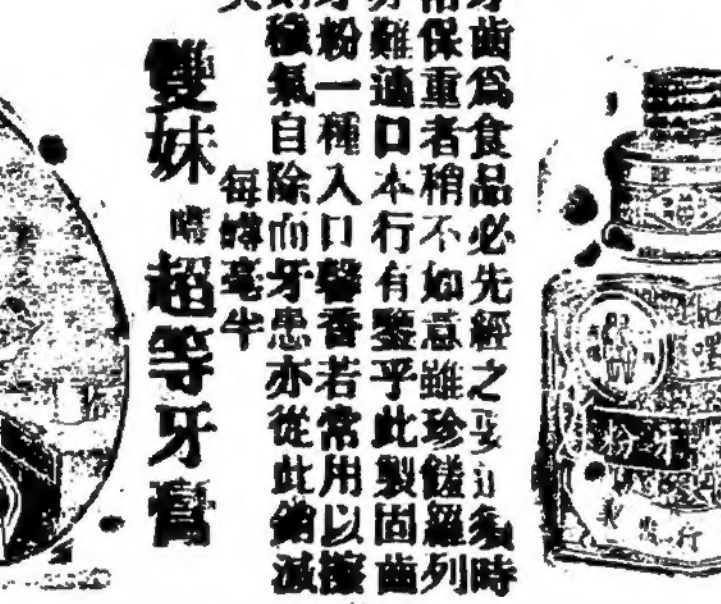 齒爲食品必先經之要道須時
保重者稍不如意雖珍饈羅列
難適口本行有鑒乎此製固齒
粉一種入口馨香若常用以擦
穢氣自除而牙患亦從此銷滅
每罇毫半
雙妹嘜超等牙膏
粉牙